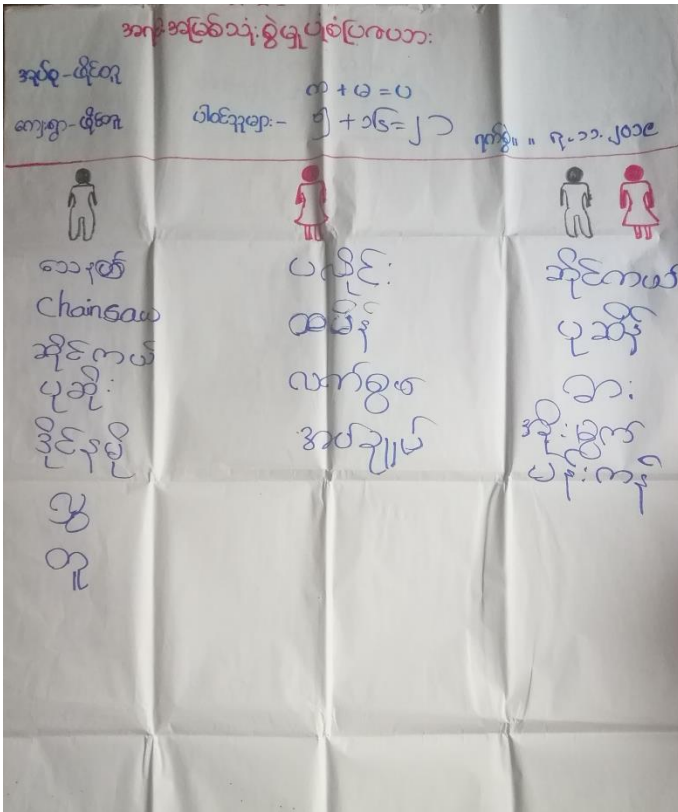 အရင်းအမြစ်သုံးစွဲမှုပုံစံပြဇယား
အုပ်စု-
ကျား + မ = ပ
ကျေးရွာ-
ပါဝင်သူများ - ၅ + ၁၆ = ၂၁
ရက်စွဲ ။ ။ ၇.၁၁.၂၀၁၉
သေနတ်
Chainsaw
ဆိုင်ကယ်
ပုဆိုး
ဒိုင်နမို
လွှ
တူ
ပလိုင်း
ထမိန်
အပ်ချုပ်
ဆိုင်ကယ်
ပုဆိန်
ဓား
အိုးခွက်
ပန်းကန်